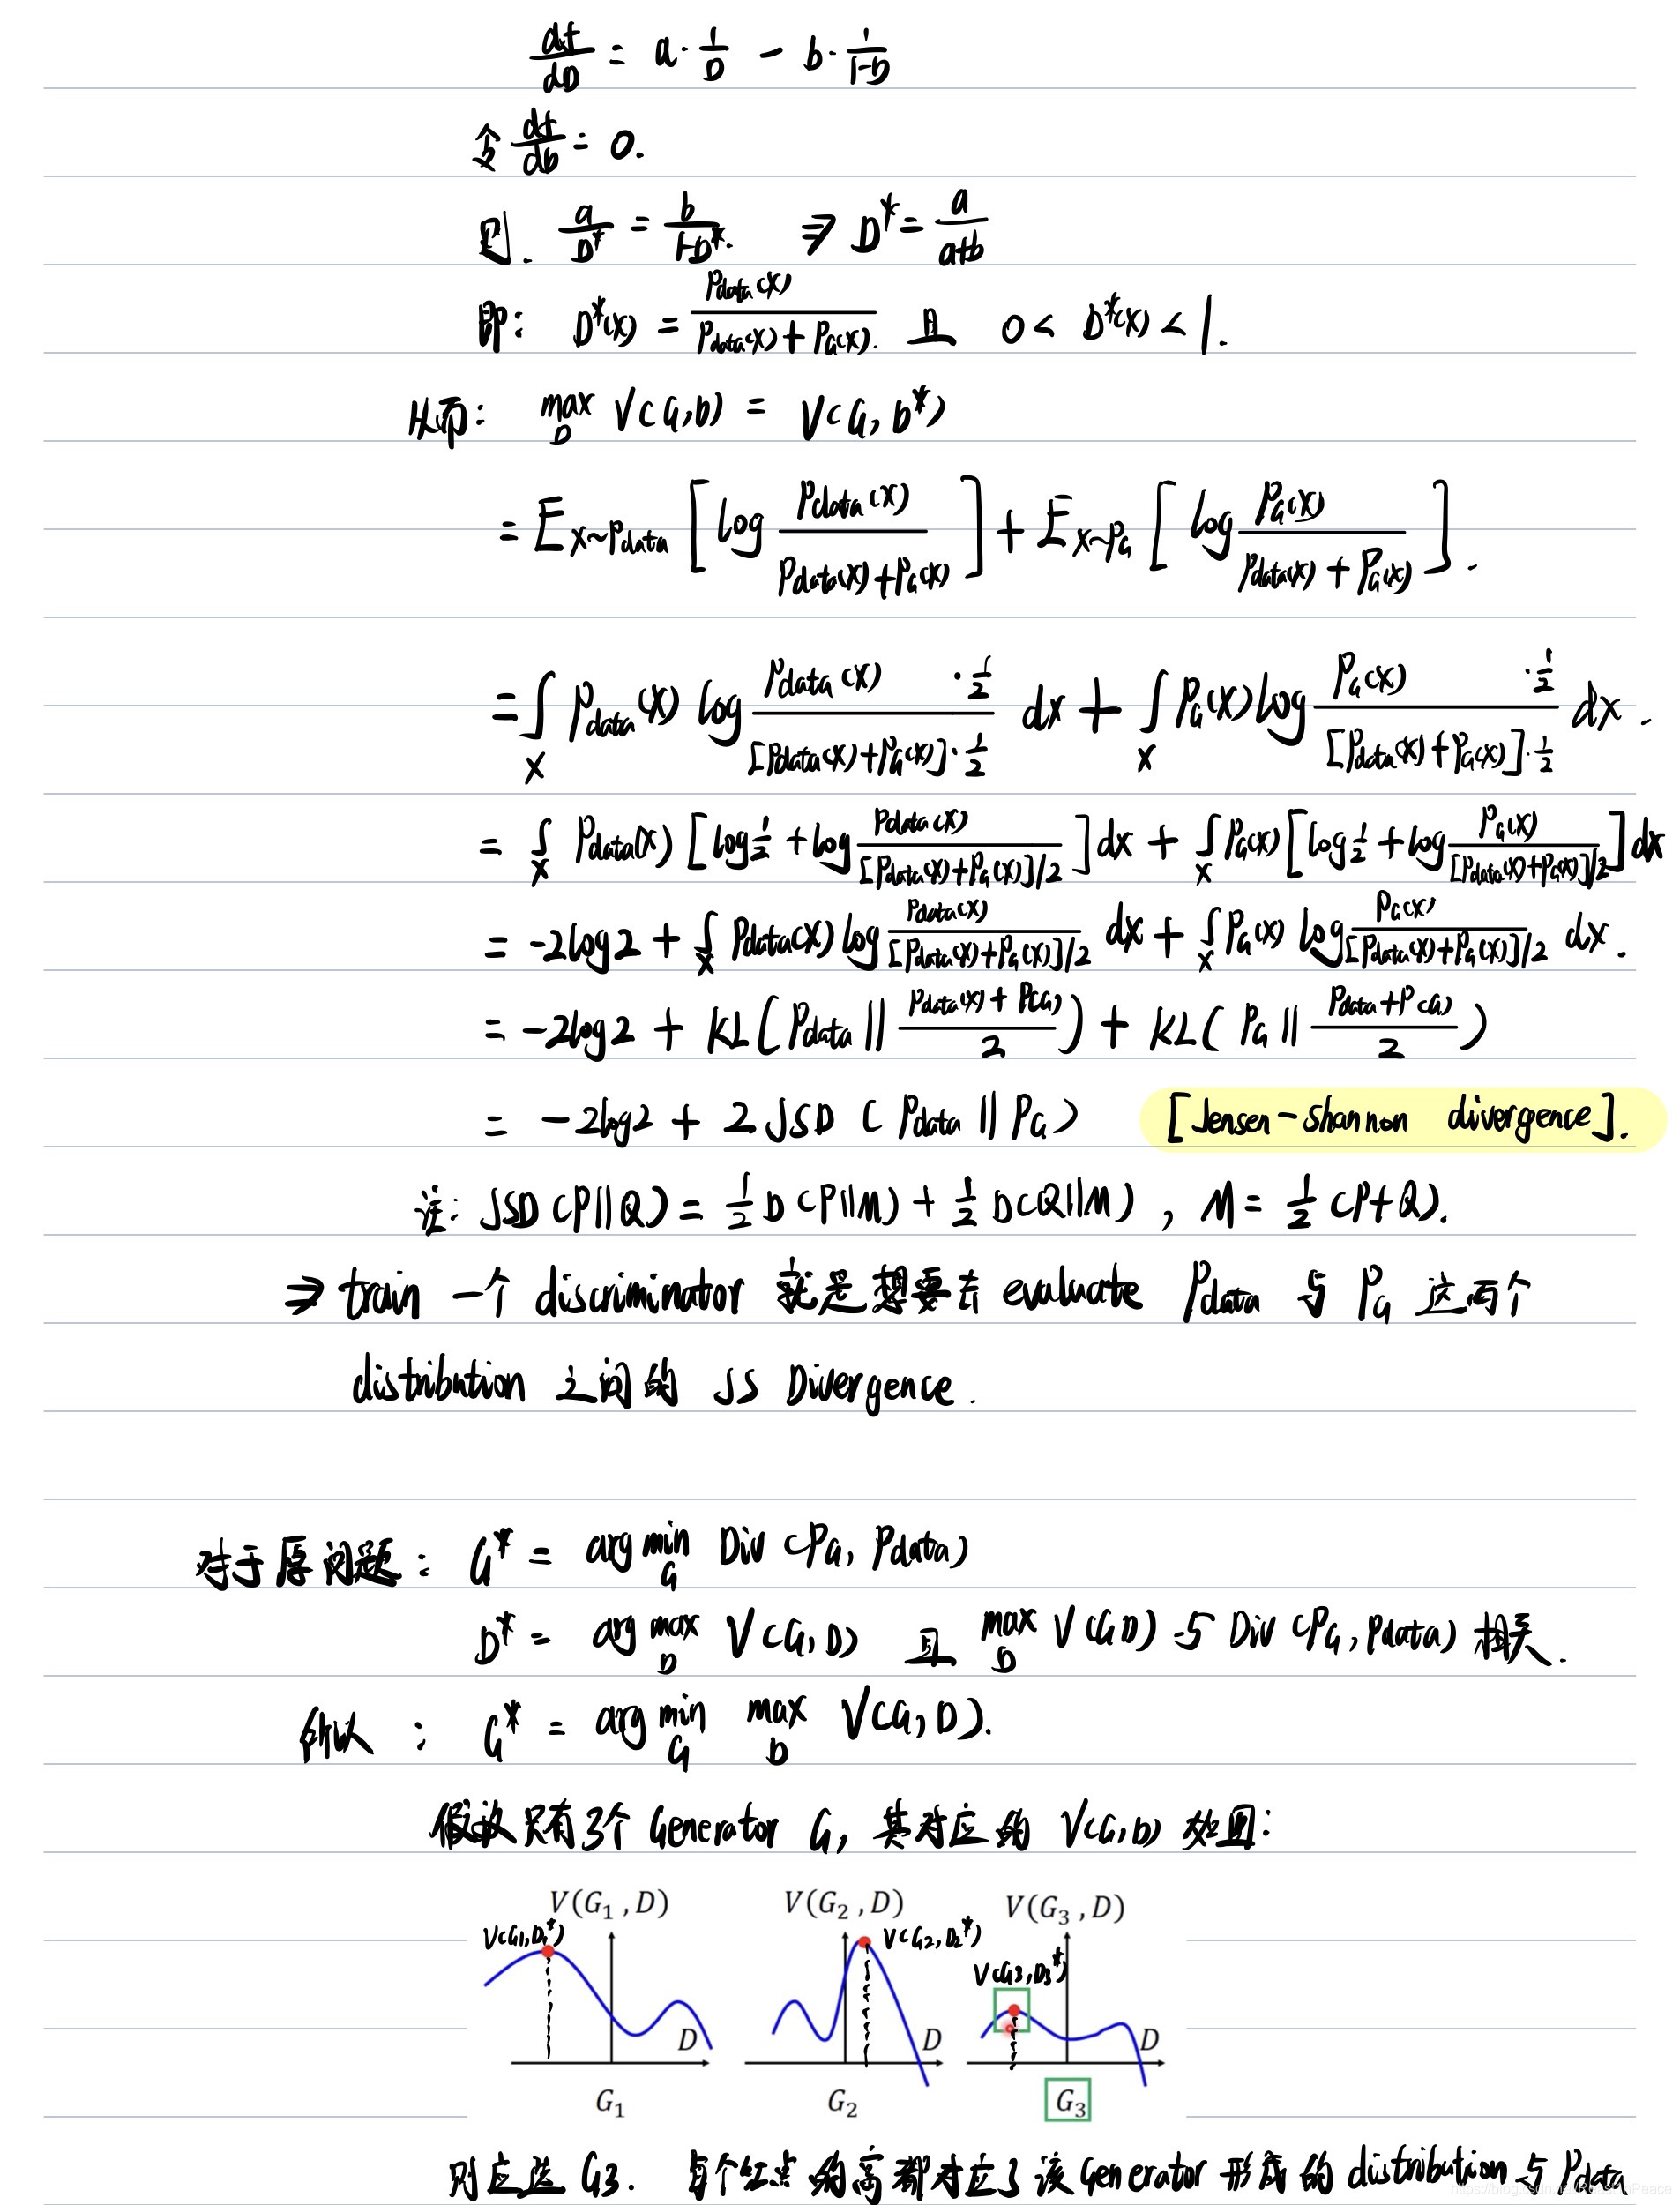 df/dD = a · 1/D - b · 1/(1-D)
令 df/dD = 0.
则. a/D* = b/(1-D*). ⇒ D* = a/(a+b)
即: D*(x) = Pdata(x)/(Pdata(x)+PG(x)). 且 0 < D*(x) < 1.
从而: max_D V(G,D) = V(G,D*)
= E_{x~Pdata} [log Pdata(x)/(Pdata(x)+PG(x))] + E_{x~PG} [log PG(x)/(Pdata(x)+PG(x))].
= ∫_x Pdata(x) log (Pdata(x) · 1/2)/([Pdata(x)+PG(x)] · 1/2) dx + ∫_x PG(x) log (PG(x) · 1/2)/([Pdata(x)+PG(x)] · 1/2) dx.
= ∫_x Pdata(x) [log 1/2 + log Pdata(x)/([Pdata(x)+PG(x)]/2)] dx + ∫_x PG(x) [log 1/2 + log PG(x)/([Pdata(x)+PG(x)]/2)] dx
= -2log2 + ∫_x Pdata(x) log Pdata(x)/([Pdata(x)+PG(x)]/2) dx + ∫_x PG(x) log PG(x)/([Pdata(x)+PG(x)]/2) dx.
= -2log2 + KL(Pdata || (Pdata(x)+P(G))/2) + KL(PG || (Pdata+P(G))/2)
= -2log2 + 2JSD(Pdata || PG) [Jensen-Shannon divergence].
注: JSD(P||Q) = 1/2 D(P||M) + 1/2 D(Q||M), M = 1/2 (P+Q).
⇒ train 一个 discriminator 就是想要去 evaluate Pdata 与 PG 这两个
distribution 之间的 JS Divergence.
对于原问题: G* = arg min_G Div(PG, Pdata)
D* = arg max_D V(G,D) 且 max_D V(G,D) 与 Div(PG, Pdata) 相关.
所以: G* = arg min_G max_D V(G,D).
假设只有3个 Generator G, 其对应的 V(G,D) 如图:
V(G1, D) V(G2, D) V(G3, D)
V(G1,D1*) V(G2,D2*) V(G3,D3*)
D D D
G1 G2 G3
则应选 G3. 每个红点的高都对应了该 Generator 形成的 distribution 与 Pdata